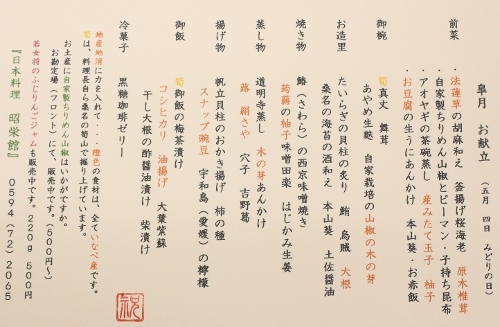 皐月 お献立 (五月 四日 みどりの日)
前菜 ・法蓮草の胡麻和え 釜揚げ桜海老 原木椎茸
・自家製ちりめん山椒とピーマン・子持ち昆布
・アオヤギの茶碗蒸し 産みたて玉子 柚子
・お豆腐の生うにあんかけ 本山葵・お赤飯
御椀 筍真丈 舞茸
あやめ生麩 自家栽培の山椒の木の芽
お造里 たいらぎの貝柱の炙り 鮪 烏賊 大根
桑名の海苔の酒和え 本山葵 土佐醤油
焼き物 鰆(さわら)の西京味噌焼き
蒟蒻の柚子味噌田楽 はじかみ生姜
蒸し物 道明寺蒸し 木の芽あんかけ
蕗 絹さや 穴子 吉野葛
揚げ物 帆立貝柱のおかき揚げ 柿の種
スナップ豌豆 宇和島(愛媛)の檸檬
御飯 筍御飯の梅茶漬け
コシヒカリ 油揚げ 大葉紫蘇
干し大根の酢醤油漬け 柴漬け
冷菓子 黒糖珈琲ゼリー
地産地消に力を入れて・・橙色の食材は、全ていなべ産です。
筍は、料理長自ら桑名の筍山で掘り上げています。
お土産に自家製ちりめん山椒はいかがですか。
お勘定場(フロント)にて、販売中です。(600円~)
若女将のふじりんごジャムも販売中です。220g 500円
『日本料理 昭栄館』 0594(72)2065
祝